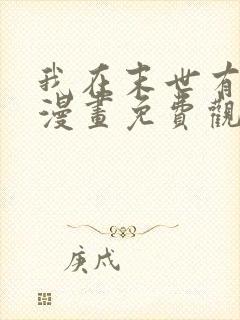 我在末世有
漫畫免費觀
庚戌